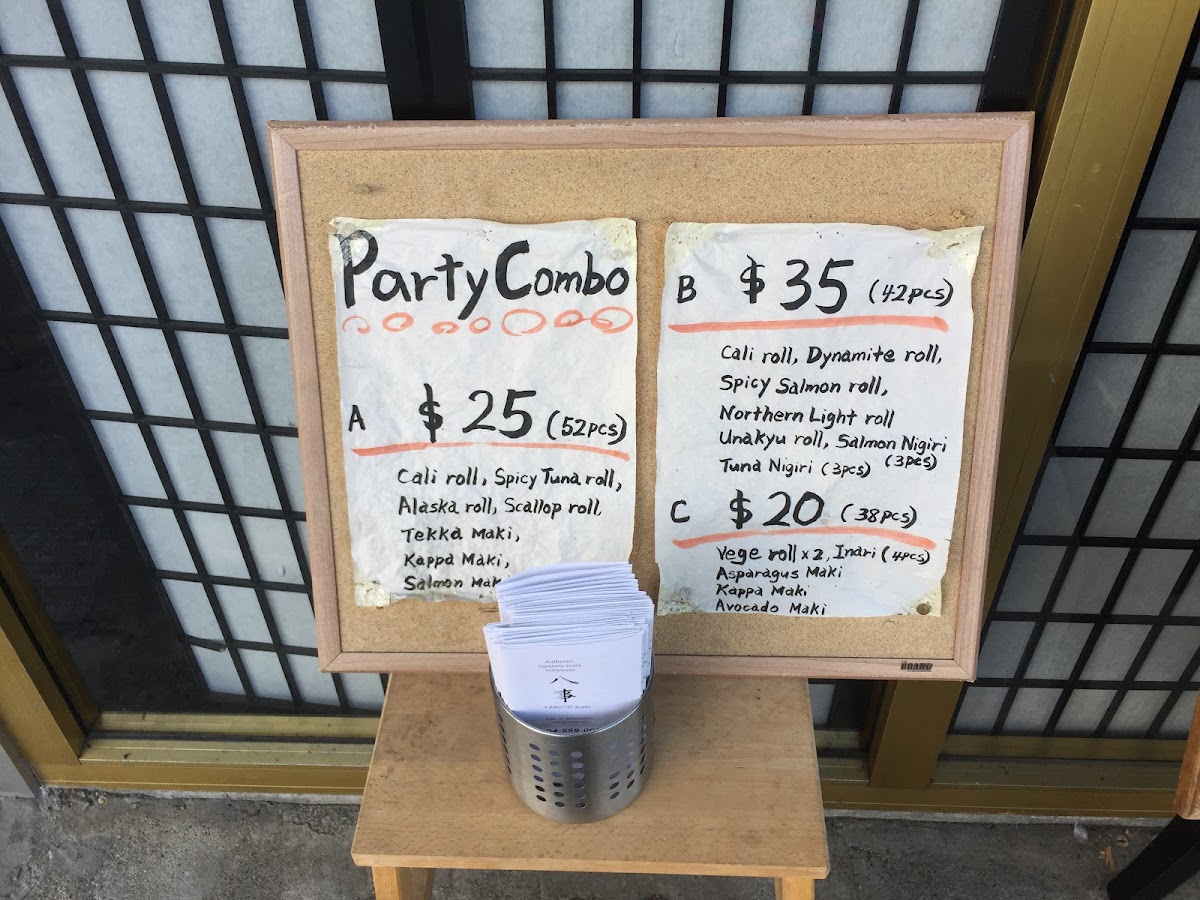 Party Combo
A $25 (52pcs)
Cali roll, Spicy Tuna roll,
Alaska roll, Scallop roll,
Tekka Maki,
Kappa Maki,
Salmon
B $35 (42pcs)
Cali roll, Dynamite roll,
Spicy Salmon roll,
Northern Light roll
Unakyu roll, Salmon Nigiri
(3pcs)
Tuna Nigiri (3pcs)
C $20 (38pcs)
Vege roll x 2, Inari (4pcs)
Asparagus Maki
Kappa Maki
Avocado Maki
Authentic
Japanese sushi
restaurant
八
事